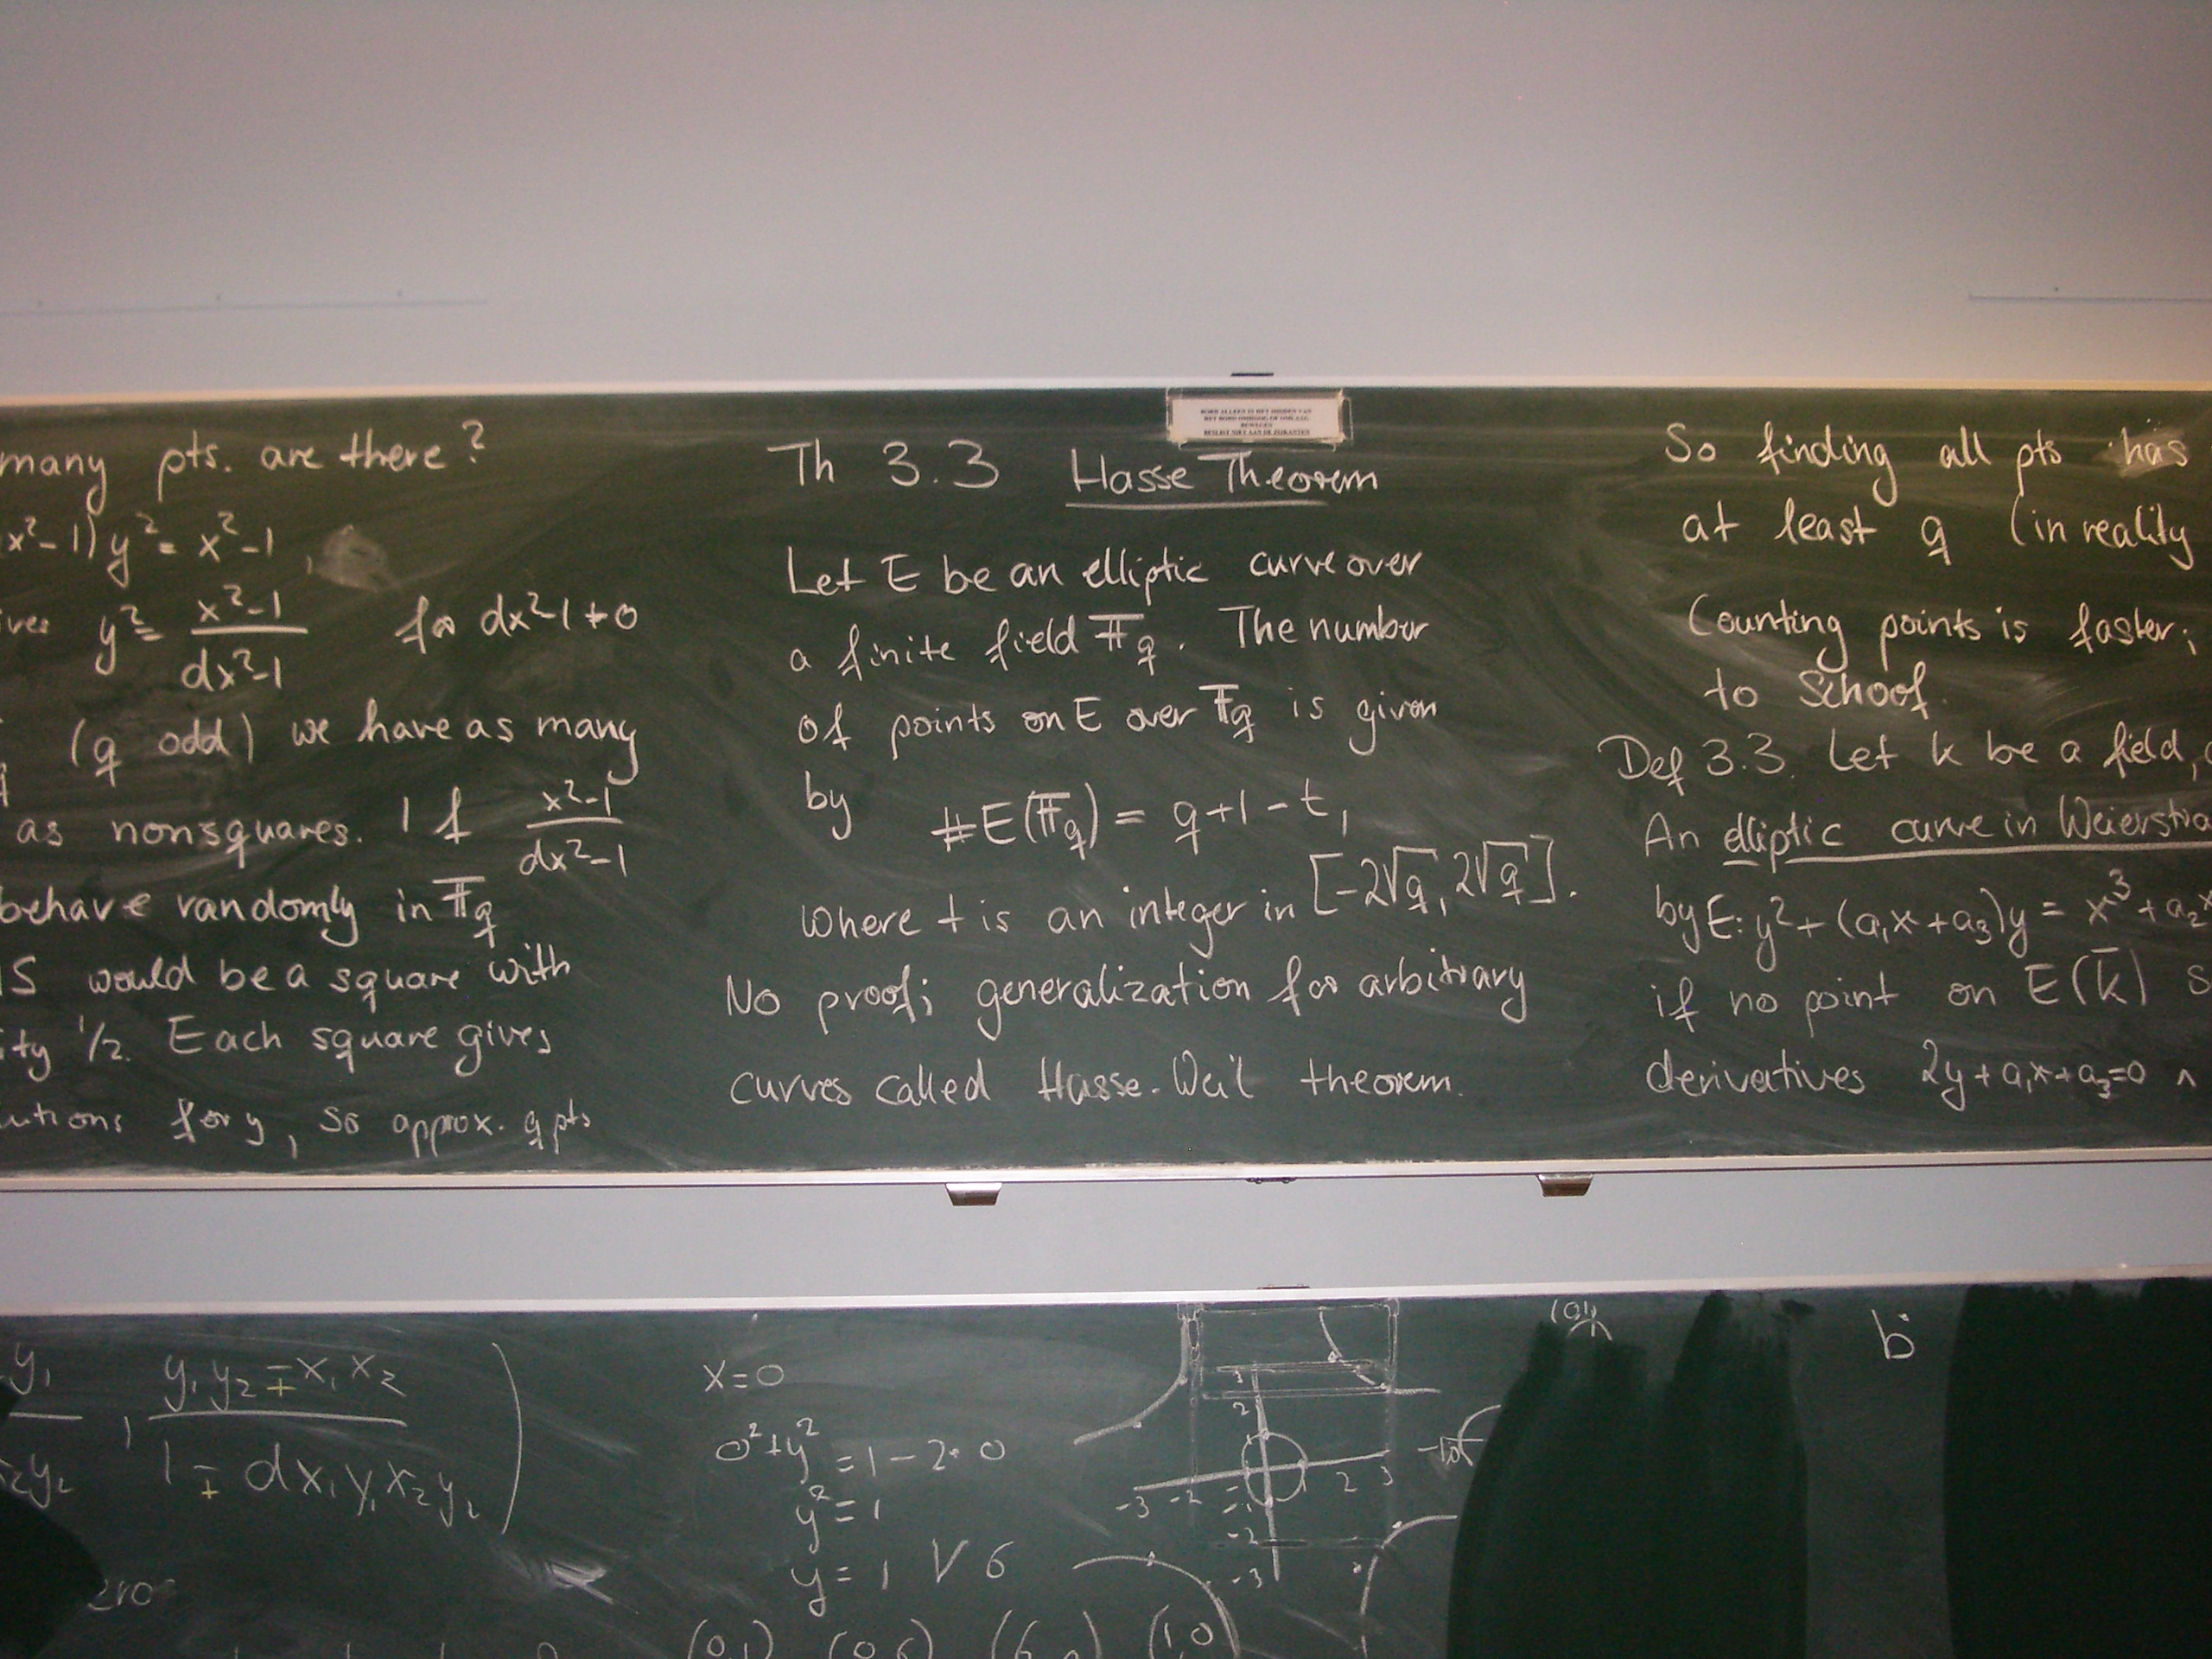 many pts. are there?
x²-1)y² = x²-1
y² = x²-1 / dx²-1 for dx²-1 ≠ 0
(q odd) we have as many
as nonsquares. If x²-1 / dx²-1
behave randomly in 𝔽q
would be a square with
1/2. Each square gives
for y, so approx. q pts
Th 3.3 Hasse Theorem
Let E be an elliptic curve over
a finite field 𝔽q. The number
of points on E over 𝔽q is given
by #E(𝔽q) = q+1-t,
where t is an integer in [-2√q, 2√q].
No proof; generalization for arbitrary
curves called Hasse-Weil theorem.
BORD ALLEEN IN HET MIDDEN VAN
HET BORD OMHOOG OF OMLAAG
BEWEGEN
BESLIST NIET AAN DE ZIJKANTEN
So finding all pts has
at least q (in reality
Counting points is faster;
to Schoof.
Def 3.3. Let k be a field,
An elliptic curve in
by E: y²+(a₁x+a₃)y = x³+a₂x
if no point on E(k̄)
derivatives 2y+a₁x+a₃=0 ∧
y₁ , y₁y₂ ∓ x₁x₂
y₂ 1 ∓ dx₁y₁x₂y₂ )
x=0
0²+y² = 1-2·0
y² = 1
y = 1 V 6
(0,1) (0,6) (6,0) (1,0)
3
2
-3 -2 2 3
-1
-2
-3
b